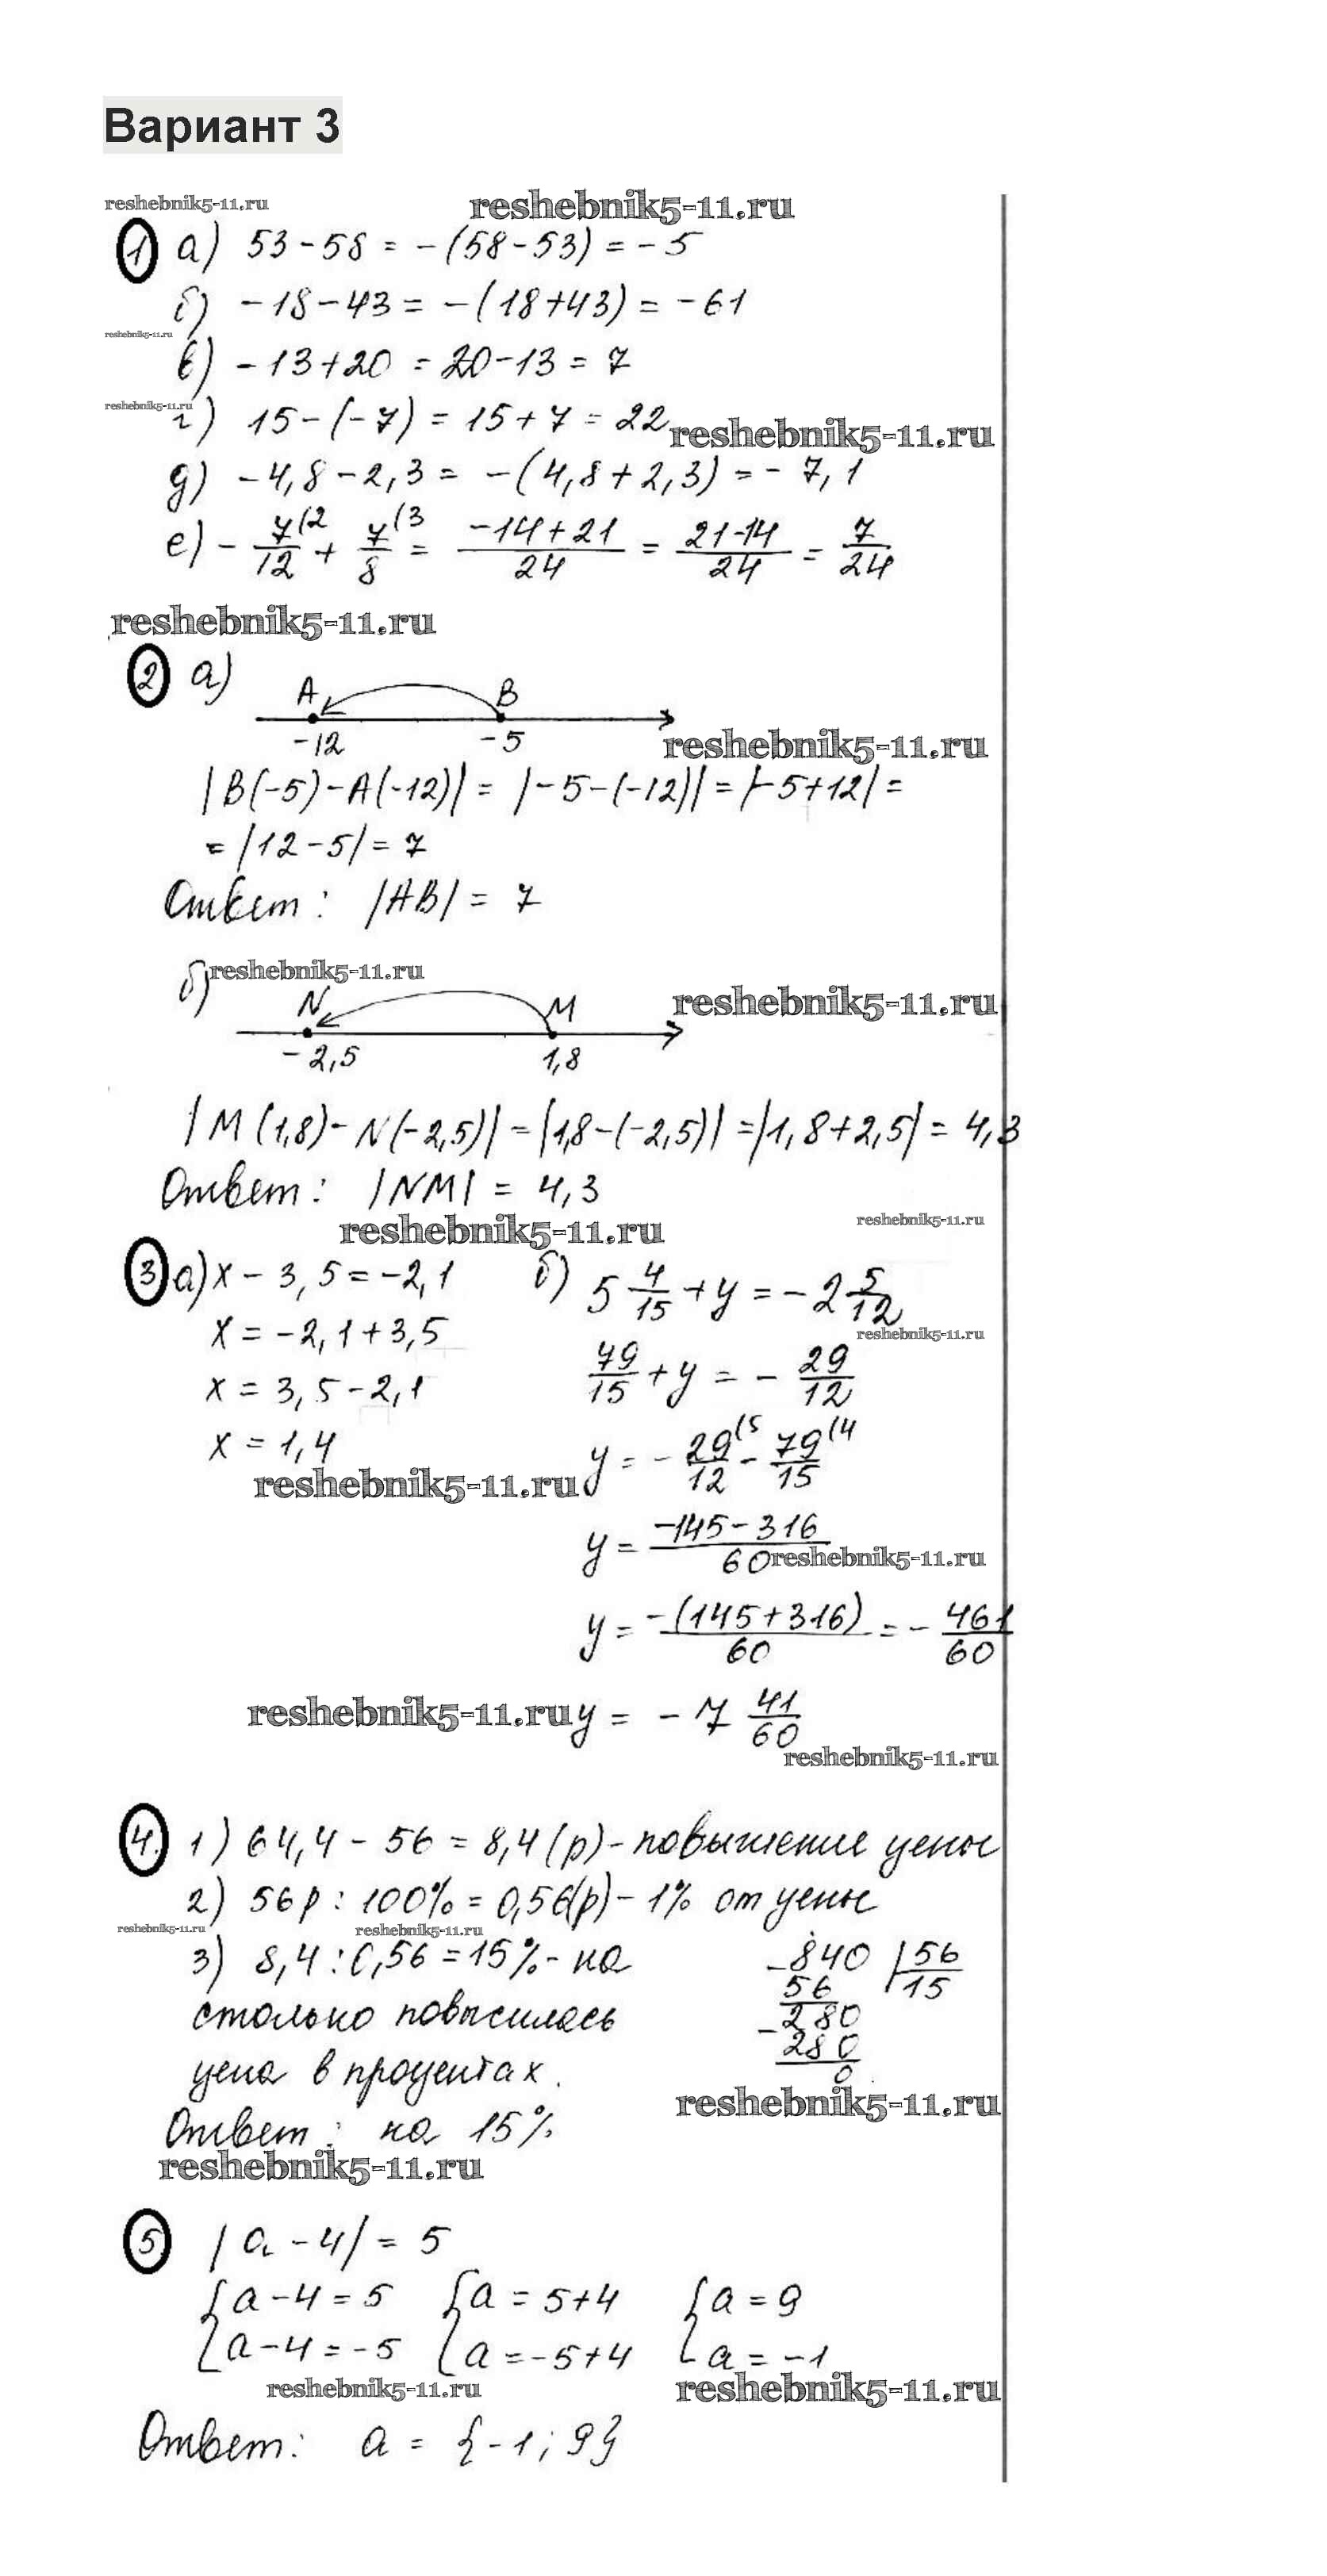 Вариант 3
reshebnik5-11.ru reshebnik5-11.ru
1 а) 53-58 = -(58-53) = -5
б) -18-43 = -(18+43) = -61
reshebnik5-11.ru
в) -13+20 = 20-13 = 7
reshebnik5-11.ru
г) 15-(-7) = 15+7 = 22
reshebnik5-11.ru
д) -4,8-2,3 = -(4,8+2,3) = -7,1
е) - 7/12 (2 + 7/8 (3 = (-14+21)/24 = (21-14)/24 = 7/24
reshebnik5-11.ru
2 а)
A B
-12 -5
reshebnik5-11.ru
|B(-5)-A(-12)| = |-5-(-12)| = |-5+12| =
= |12-5| = 7
Ответ: |AB| = 7
б) reshebnik5-11.ru
N M reshebnik5-11.ru
-2,5 1,8
|M(1,8)-N(-2,5)| = |1,8-(-2,5)| = |1,8+2,5| = 4,3
Ответ: |NM| = 4,3
reshebnik5-11.ru reshebnik5-11.ru
3 а) x - 3,5 = -2,1
x = -2,1+3,5
x = 3,5-2,1
x = 1,4
reshebnik5-11.ru
б) 5 4/15 + y = -2 5/12
reshebnik5-11.ru
79/15 + y = - 29/12
y = - 29/12 (5 - 79/15 (4
y = (-145-316)/60
reshebnik5-11.ru
y = -(145+316)/60 = - 461/60
reshebnik5-11.ru y = -7 41/60
reshebnik5-11.ru
4. 1) 64,4 - 56 = 8,4 (р) - повышение цены
2) 56р : 100% = 0,56(р) - 1% от цены
reshebnik5-11.ru reshebnik5-11.ru
3) 8,4 : 0,56 = 15% - на
столько повысилась
цена в процентах.
-840 |56
56 15
-280
280
0
reshebnik5-11.ru
Ответ: на 15%
reshebnik5-11.ru
5 |a - 4| = 5
{a-4 = 5 {a = 5+4 {a = 9
a-4 = -5 a = -5+4 a = -1
reshebnik5-11.ru reshebnik5-11.ru
Ответ: a = {-1; 9}